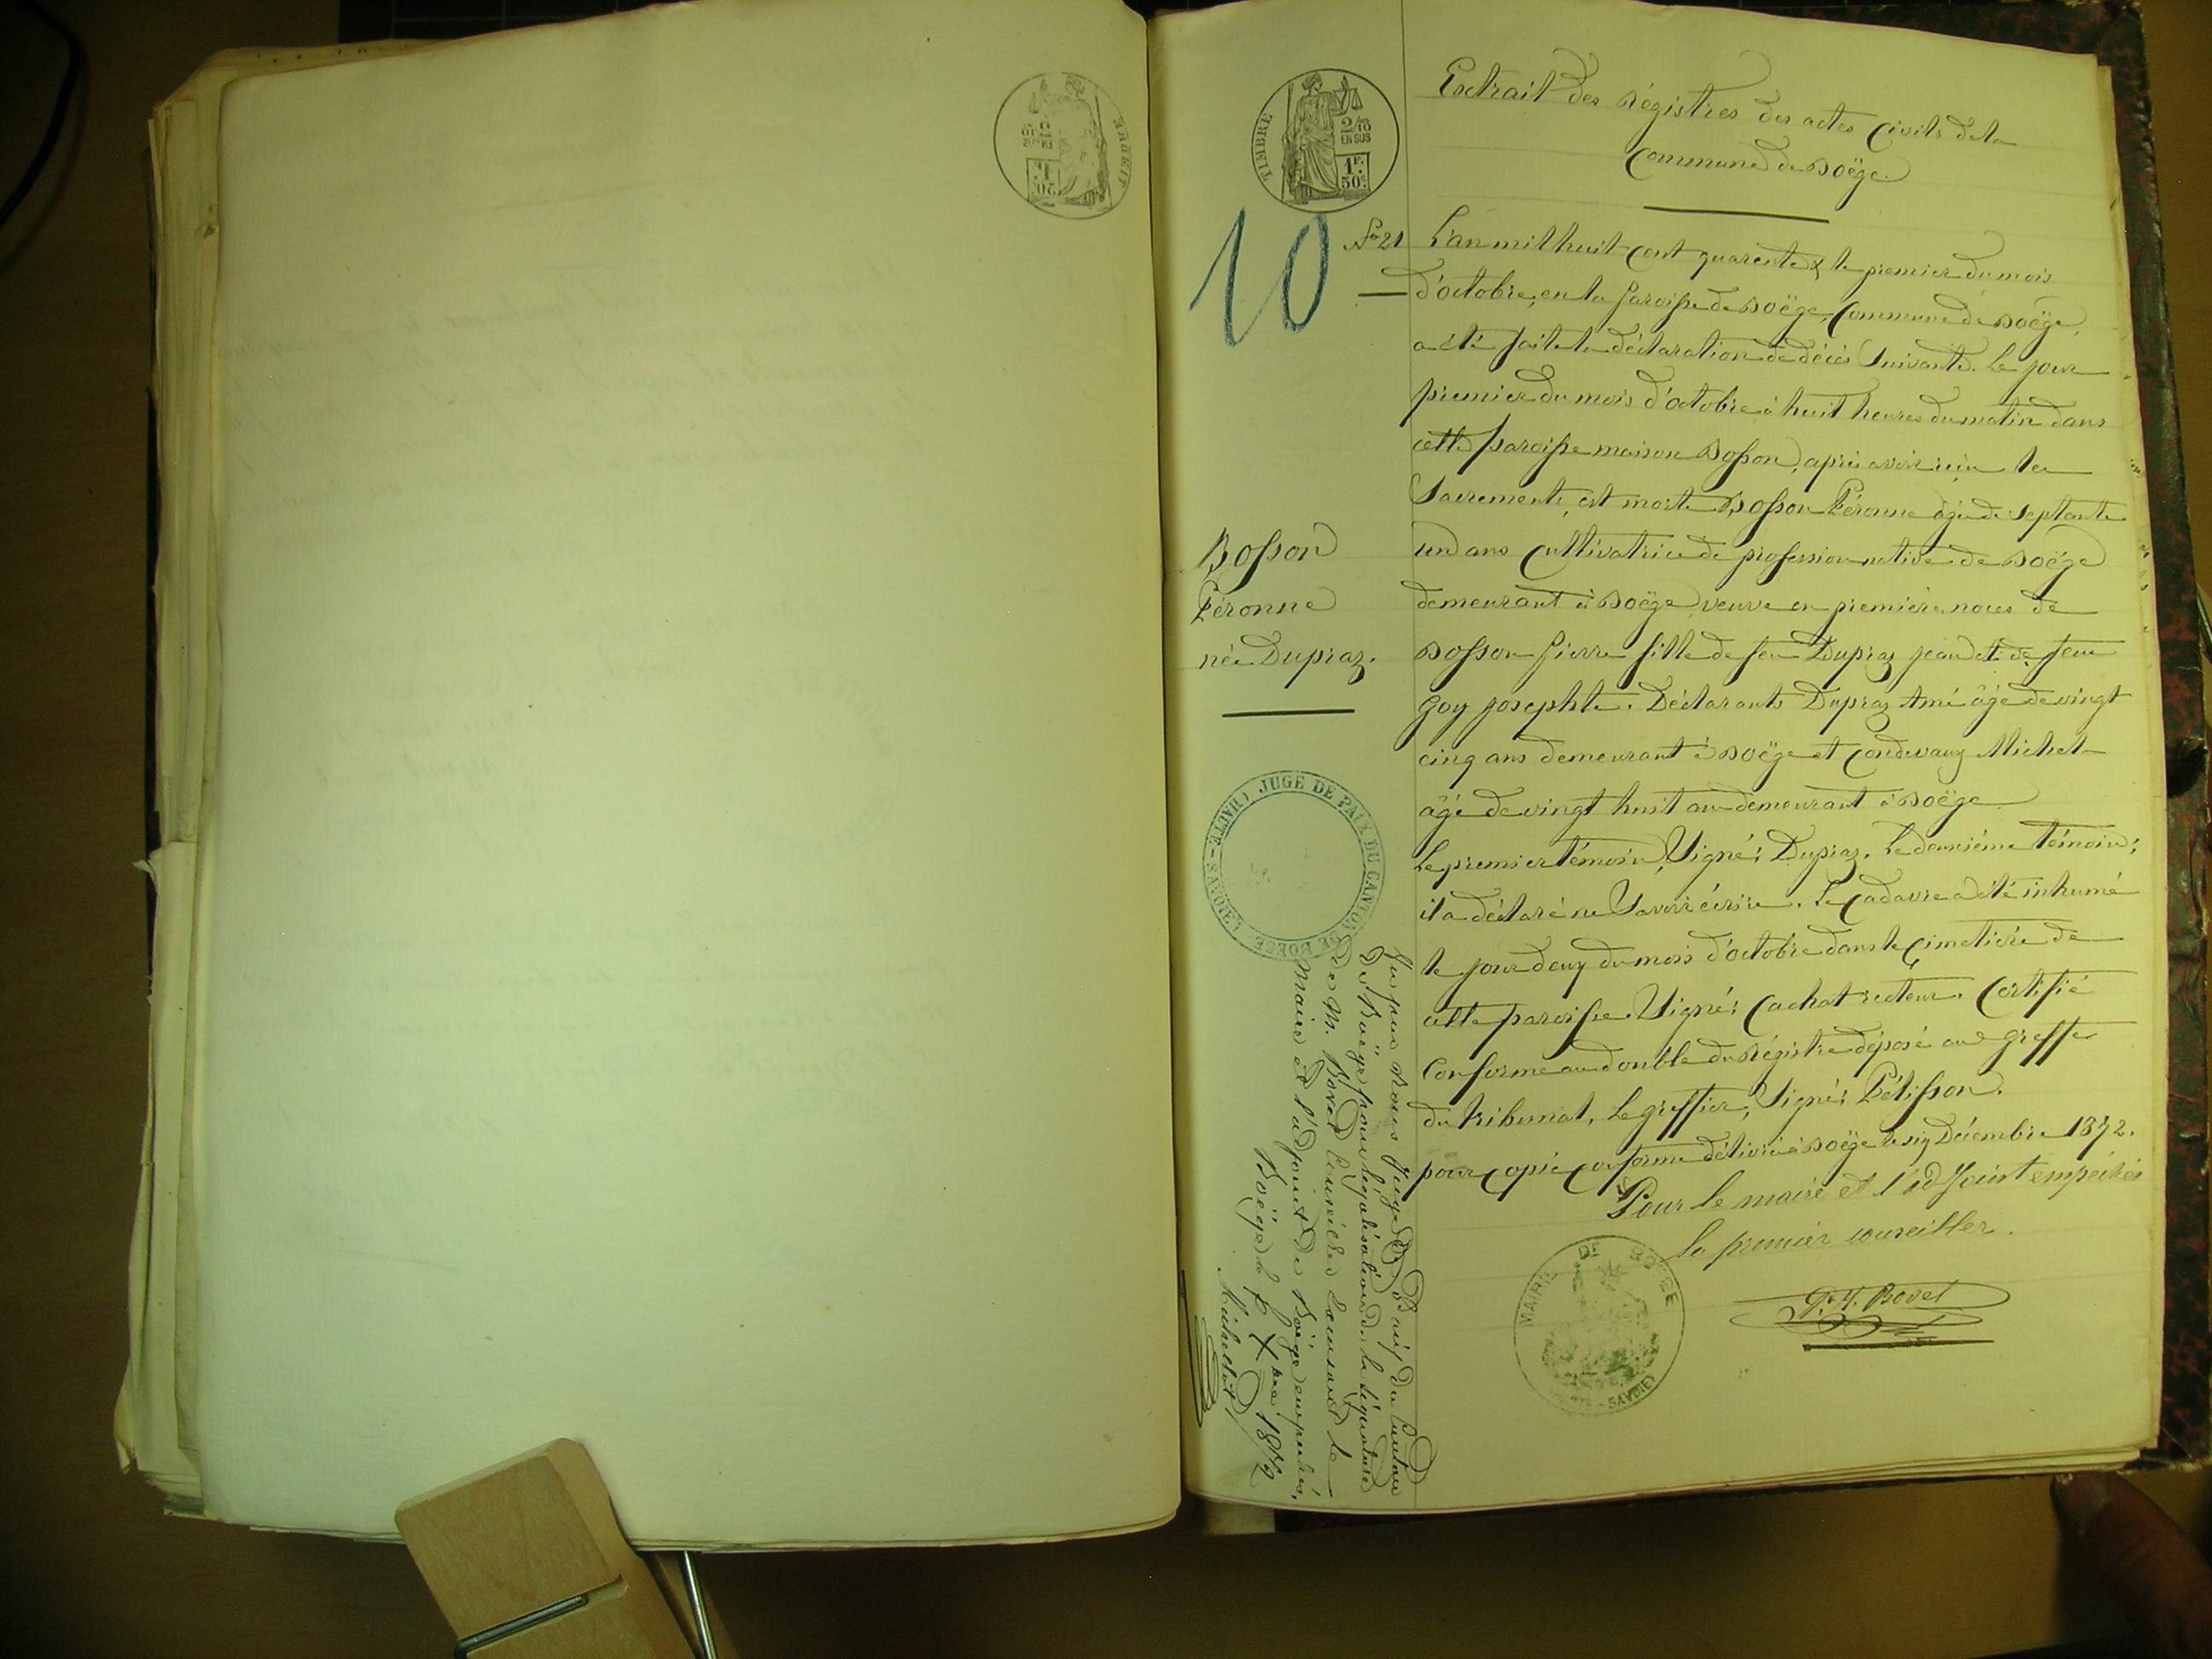 TIMBRE
2/10
EN SUS
1F.
50c.
10
Extrait des Régistres des actes Civils de la
Commune de Boëge.
No 21
L'an mil huit cent quarante & le premier du mois
d'octobre, en la paroisse de Boëge, Commune de Boëge,
a été faite la déclaration de décès suivante. Le jour
premier du mois d'octobre à huit heures du matin dans
cette paroisse maison Bosson, après avoir reçu les
Sacrements, est morte Bosson Péronne âgée de septante
un ans Cultivatrice de profession native de Boëge
demeurant à Boëge veuve en premières noces de
Bosson Pierre fille de feu Dupraz Jean et de feue
Goy Josephte. Déclarants Dupraz Amé âgé de vingt
cinq ans demeurant à Boëge et Condevaux Michel
âgé de vingt huit ans demeurant à Boëge.
Le premier témoin, Signé: Dupraz. Le deuxième témoin:
il a déclaré ne Savoir écrire. Le Cadavre a été inhumé
le jour deux du mois d'octobre dans le Cimetière de
cette paroisse. Signé: Cachat recteur. Certifié
Conforme au double du Régistre déposé au Greffe
du tribunal, Le greffier, Signé: Pétisson.
pour copie conforme délivrée à Boëge le six Décembre 1872.
Pour le maire et l'adjoint empêchés
le premier conseiller.
P. M. Bovet
MAIRIE DE BOËGE
SAVOIE)
Bosson
Péronne
née Dupraz.
JUGE DE PAIX DU CANTON DE BOËGE (HAUTE-SAVOIE)
Vu par Nous Juge de Paix du Canton
de Boëge pour légalisation de la signature
de M. Bovet Conseiller Remplaçant le
Maire et l'adjoint de Boëge empêchés,
Boëge le 7 Xbre 1872